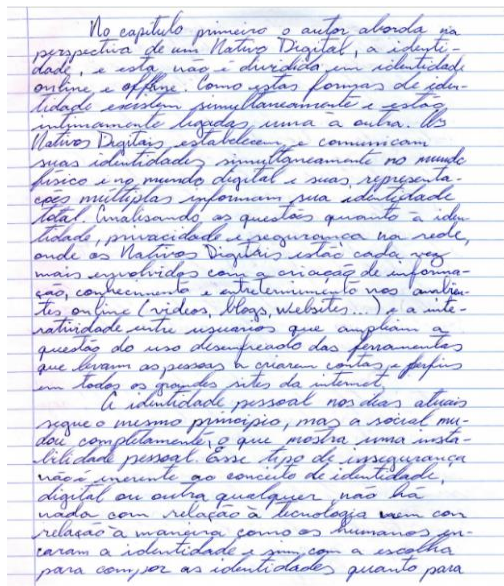 No capítulo primeiro o autor aborda na
perspectiva de um Nativo Digital, a identi-
dade, e esta não é dividida em identidade
online e offline. Como estas formas de iden-
tidade existem simultaneamente e estão
intimamente ligadas uma à outra. Os
Nativos Digitais estabelecem e comunicam
suas identidades simultaneamente no mundo
físico e no mundo digital e suas representa-
ções múltiplas informam sua identidade
total. Analisando as questões quanto à iden
tidade, privacidade e segurança na rede,
onde os Nativos Digitais estão cada vez
mais envolvidos com a criação de informa-
ção, conhecimento e entretenimento nos ambien
tes online (vídeos, blogs, websites...) e a inte-
ratividade entre usuários que ampliam a
questão do uso desenfreado das ferramentas
que levam as pessoas a criarem contas e perfis
em todos os grandes sites da internet.
A identidade pessoal nos dias atuais
segue o mesmo princípio, mas a social mu-
dou completamente, o que mostra uma insta-
bilidade pessoal. Esse tipo de insegurança
não é inerente ao conceito de identidade,
digital ou outra qualquer, não há
nada com relação à tecnologia nem con
relação à maneira como os humanos en-
caram a identidade e sim com a escolha
para compor as identidades quanto para